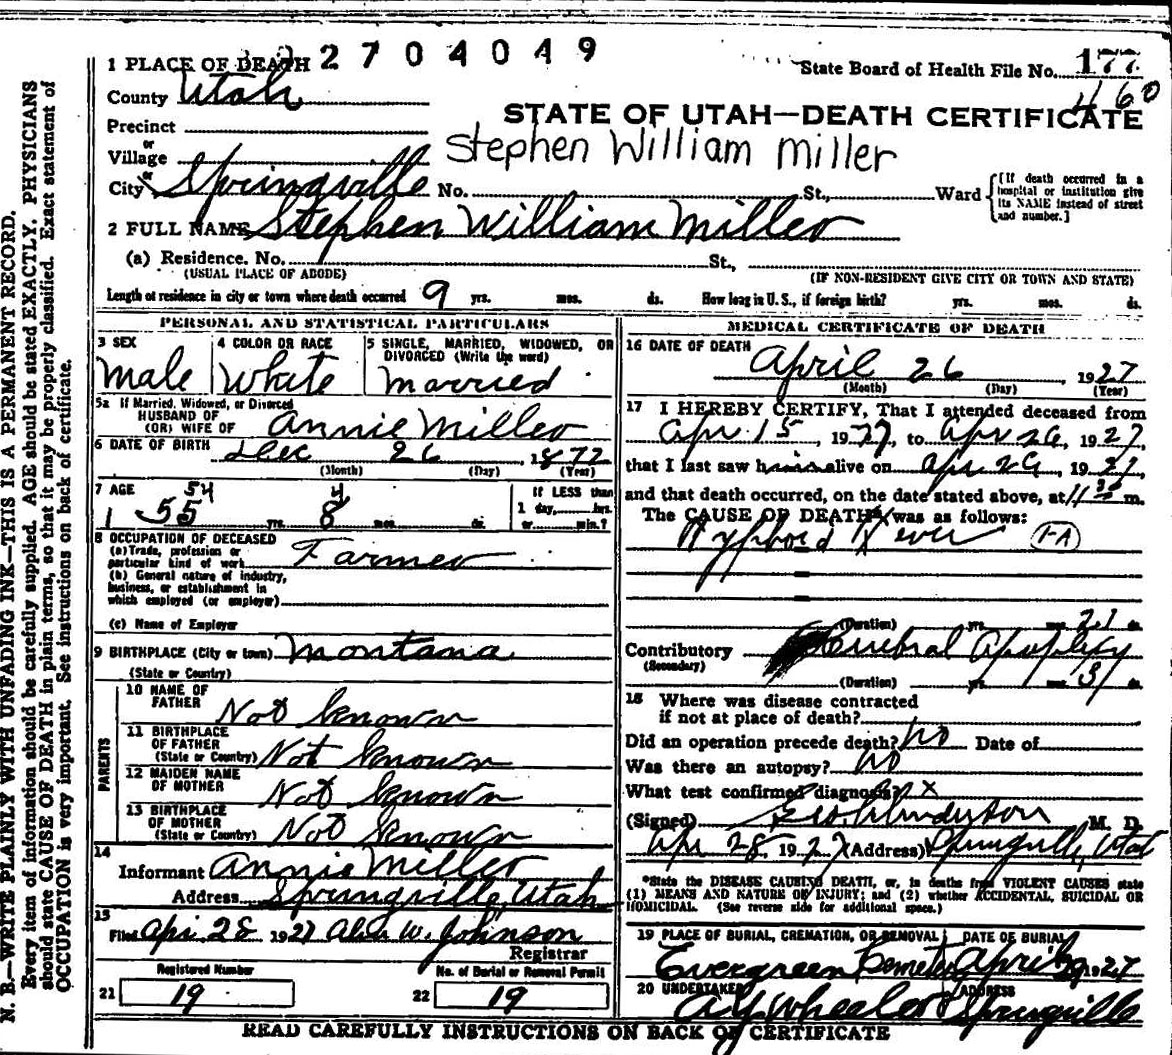 N. B.—WRITE PLAINLY WITH UNFADING INK—THIS IS A PERMANENT RECORD.
Every item of information should be carefully supplied. AGE should be stated EXACTLY. PHYSICIANS
should state CAUSE OF DEATH in plain terms, so that it may be properly classified. Exact statement of
OCCUPATION is very important. See instructions on back of certificate.
2704049
1 PLACE OF DEATH
State Board of Health File No. 177
460
County Utah
STATE OF UTAH—DEATH CERTIFICATE
Precinct
or
Village
Stephen William Miller
or
City Springville No. St., Ward
[If death occurred in a
hospital or institution give
its NAME instead of street
and number.]
2 FULL NAME Stephen William Miller
(a) Residence. No. St.,
(USUAL PLACE OF ABODE) (IF NON-RESIDENT GIVE CITY OR TOWN AND STATE)
Length of residence in city or town where death occurred 9 yrs. mos. ds. How long in U.S., if foreign birth? yrs. mos. ds.
PERSONAL AND STATISTICAL PARTICULARS
3 SEX
Male
4 COLOR OR RACE
White
5 SINGLE, MARRIED, WIDOWED, OR
DIVORCED (Write the word)
Married
5a If Married, Widowed, or Divorced
HUSBAND OF
(OR) WIFE OF Annie Miller
6 DATE OF BIRTH Dec 26, 1872
(Month) (Day) (Year)
7 AGE
54 4
55 yrs. 8 mos. ds.
If LESS than
1 day, hrs.
or min.?
8 OCCUPATION OF DECEASED
(a) Trade, profession or
particular kind of work Farmer
(b) General nature of industry,
business, or establishment in
which employed (or employer)
(c) Name of Employer
9 BIRTHPLACE (City or town) Montana
(State or Country)
PARENTS
10 NAME OF
FATHER Not Known
11 BIRTHPLACE
OF FATHER
(State or Country) Not Known
12 MAIDEN NAME
OF MOTHER Not Known
13 BIRTHPLACE
OF MOTHER
(State or Country) Not Known
14
Informant Annie Miller
Address Springville, Utah
15
Filed Apr. 28 1927 W. Johnson
Registrar
Registered Number
21 19
No. of Burial or Removal Permit
22 19
MEDICAL CERTIFICATE OF DEATH
16 DATE OF DEATH
April 26, 1927
(Month) (Day) (Year)
17 I HEREBY CERTIFY, That I attended deceased from
Apr 15, 1927, to Apr 26, 1927,
that I last saw him alive on Apr 26, 1927
and that death occurred, on the date stated above, at 11 30 m.
The CAUSE OF DEATH* was as follows:
Typhoid Fever (1-A)
(Duration) yrs. mos. 21 ds.
Contributory Cerebral Apoplexy
(Secondary)
(Duration) yrs. mos. 3 ds.
18 Where was disease contracted
if not at place of death?
Did an operation precede death? No Date of
Was there an autopsy? No
What test confirmed diagnosis? X
(Signed) M. D.
Apr 28, 1927 (Address) Springville, Utah
*State the DISEASE CAUSING DEATH, or, in deaths from VIOLENT CAUSES state
(1) MEANS AND NATURE OF INJURY; and (2) whether ACCIDENTAL, SUICIDAL OR
HOMICIDAL. (See reverse side for additional space.)
19 PLACE OF BURIAL, CREMATION, OR REMOVAL DATE OF BURIAL
Evergreen Cemetery April 1927
20 UNDERTAKER ADDRESS
A.Y. Wheeler Springville
READ CAREFULLY INSTRUCTIONS ON BACK OF CERTIFICATE